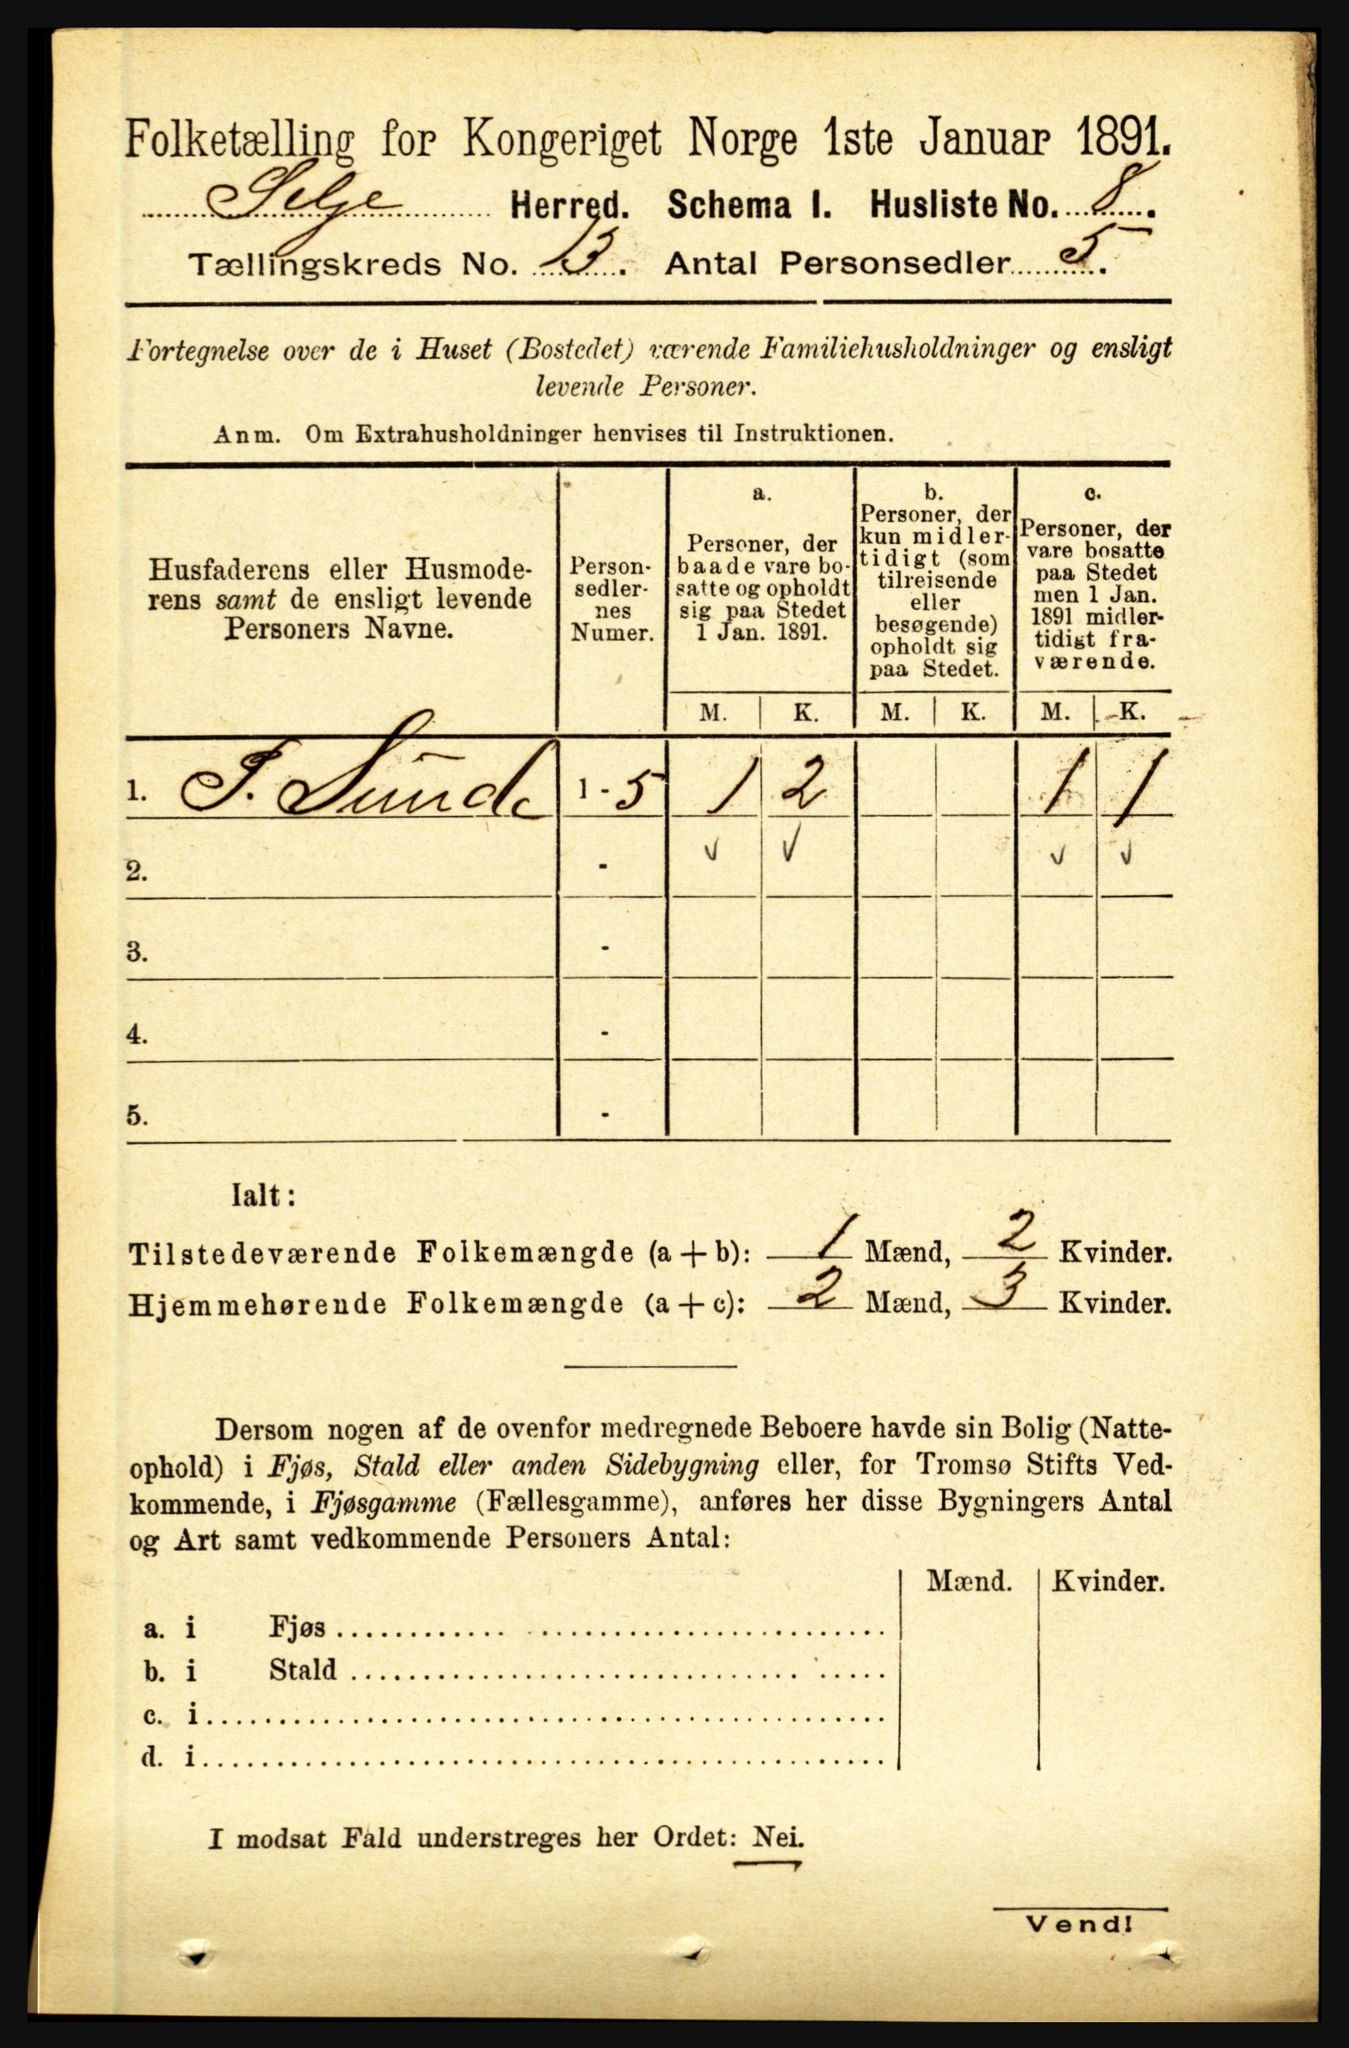 Folketælling for Kongeriget Norge 1ste Januar 1891.
Selje Herred. Schema I. Husliste No. 8.
Tællingskreds No. 13. Antal Personsedler 5.
Fortegnelse over de i Huset (Bostedet) værende Familiehusholdninger og ensligt
levende Personer.
Anm. Om Extrahusholdninger henvises til Instruktionen.
Husfaderens eller Husmode-
rens samt de ensligt levende
Personers Navne.
Person-
sedler-
nes
Numer.
a.
Personer, der
baade vare bo-
satte og opholdt
sig paa Stedet
1 Jan. 1891.
b.
Personer, der
kun midler-
tidigt (som
tilreisende
eller
besøgende)
opholdt sig
paa Stedet.
c.
Personer, der
vare bosatte
paa Stedet
men 1 Jan.
1891 midler-
tidigt fra-
værende.
M. K. M. K. M. K.
1. J. Sunde 1 - 5 1 2 1 1
2. - ✓ ✓ ✓ ✓
3. -
4. -
5. -
Ialt:
Tilstedeværende Folkemængde (a + b): 1 Mænd, 2 Kvinder.
Hjemmehørende Folkemængde (a + c): 2 Mænd, 3 Kvinder.
Dersom nogen af de ovenfor medregnede Beboere havde sin Bolig (Natte-
ophold) i Fjøs, Stald eller anden Sidebygning eller, for Tromsø Stifts Ved-
kommende, i Fjøsgamme (Fællesgamme), anføres her disse Bygningers Antal
og Art samt vedkommende Personers Antal:
Mænd. Kvinder.
a. i Fjøs
b. i Stald
c. i
d. i
I modsat Fald understreges her Ordet: Nei.
Vend!